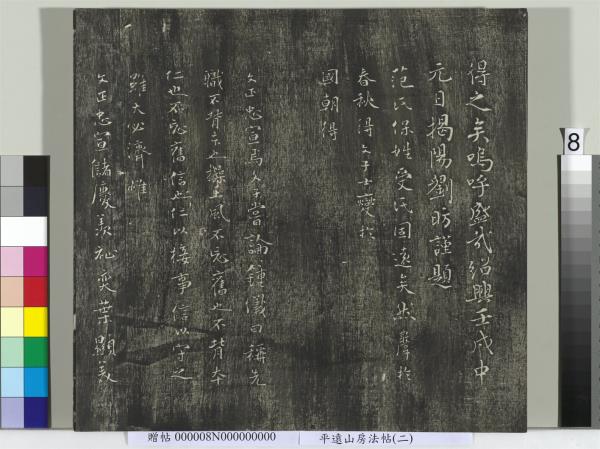 得之矣嗚呼盛哉紹興壬戌中
元日揭陽劉昉謹題
范氏保姓受氏固遠矣然㬥於
春秋得文子士燮於
國朝得
文正忠宣焉文子嘗論鍾儀曰稱先
職不背本也操土風不忘舊也不背本
仁也不忘舊信也仁以接事信以守之
雖大必濟惟
文正忠宣儲慶羨祉奕葉顯美
8
贈帖 000008N000000000 平遠山房法帖(二)